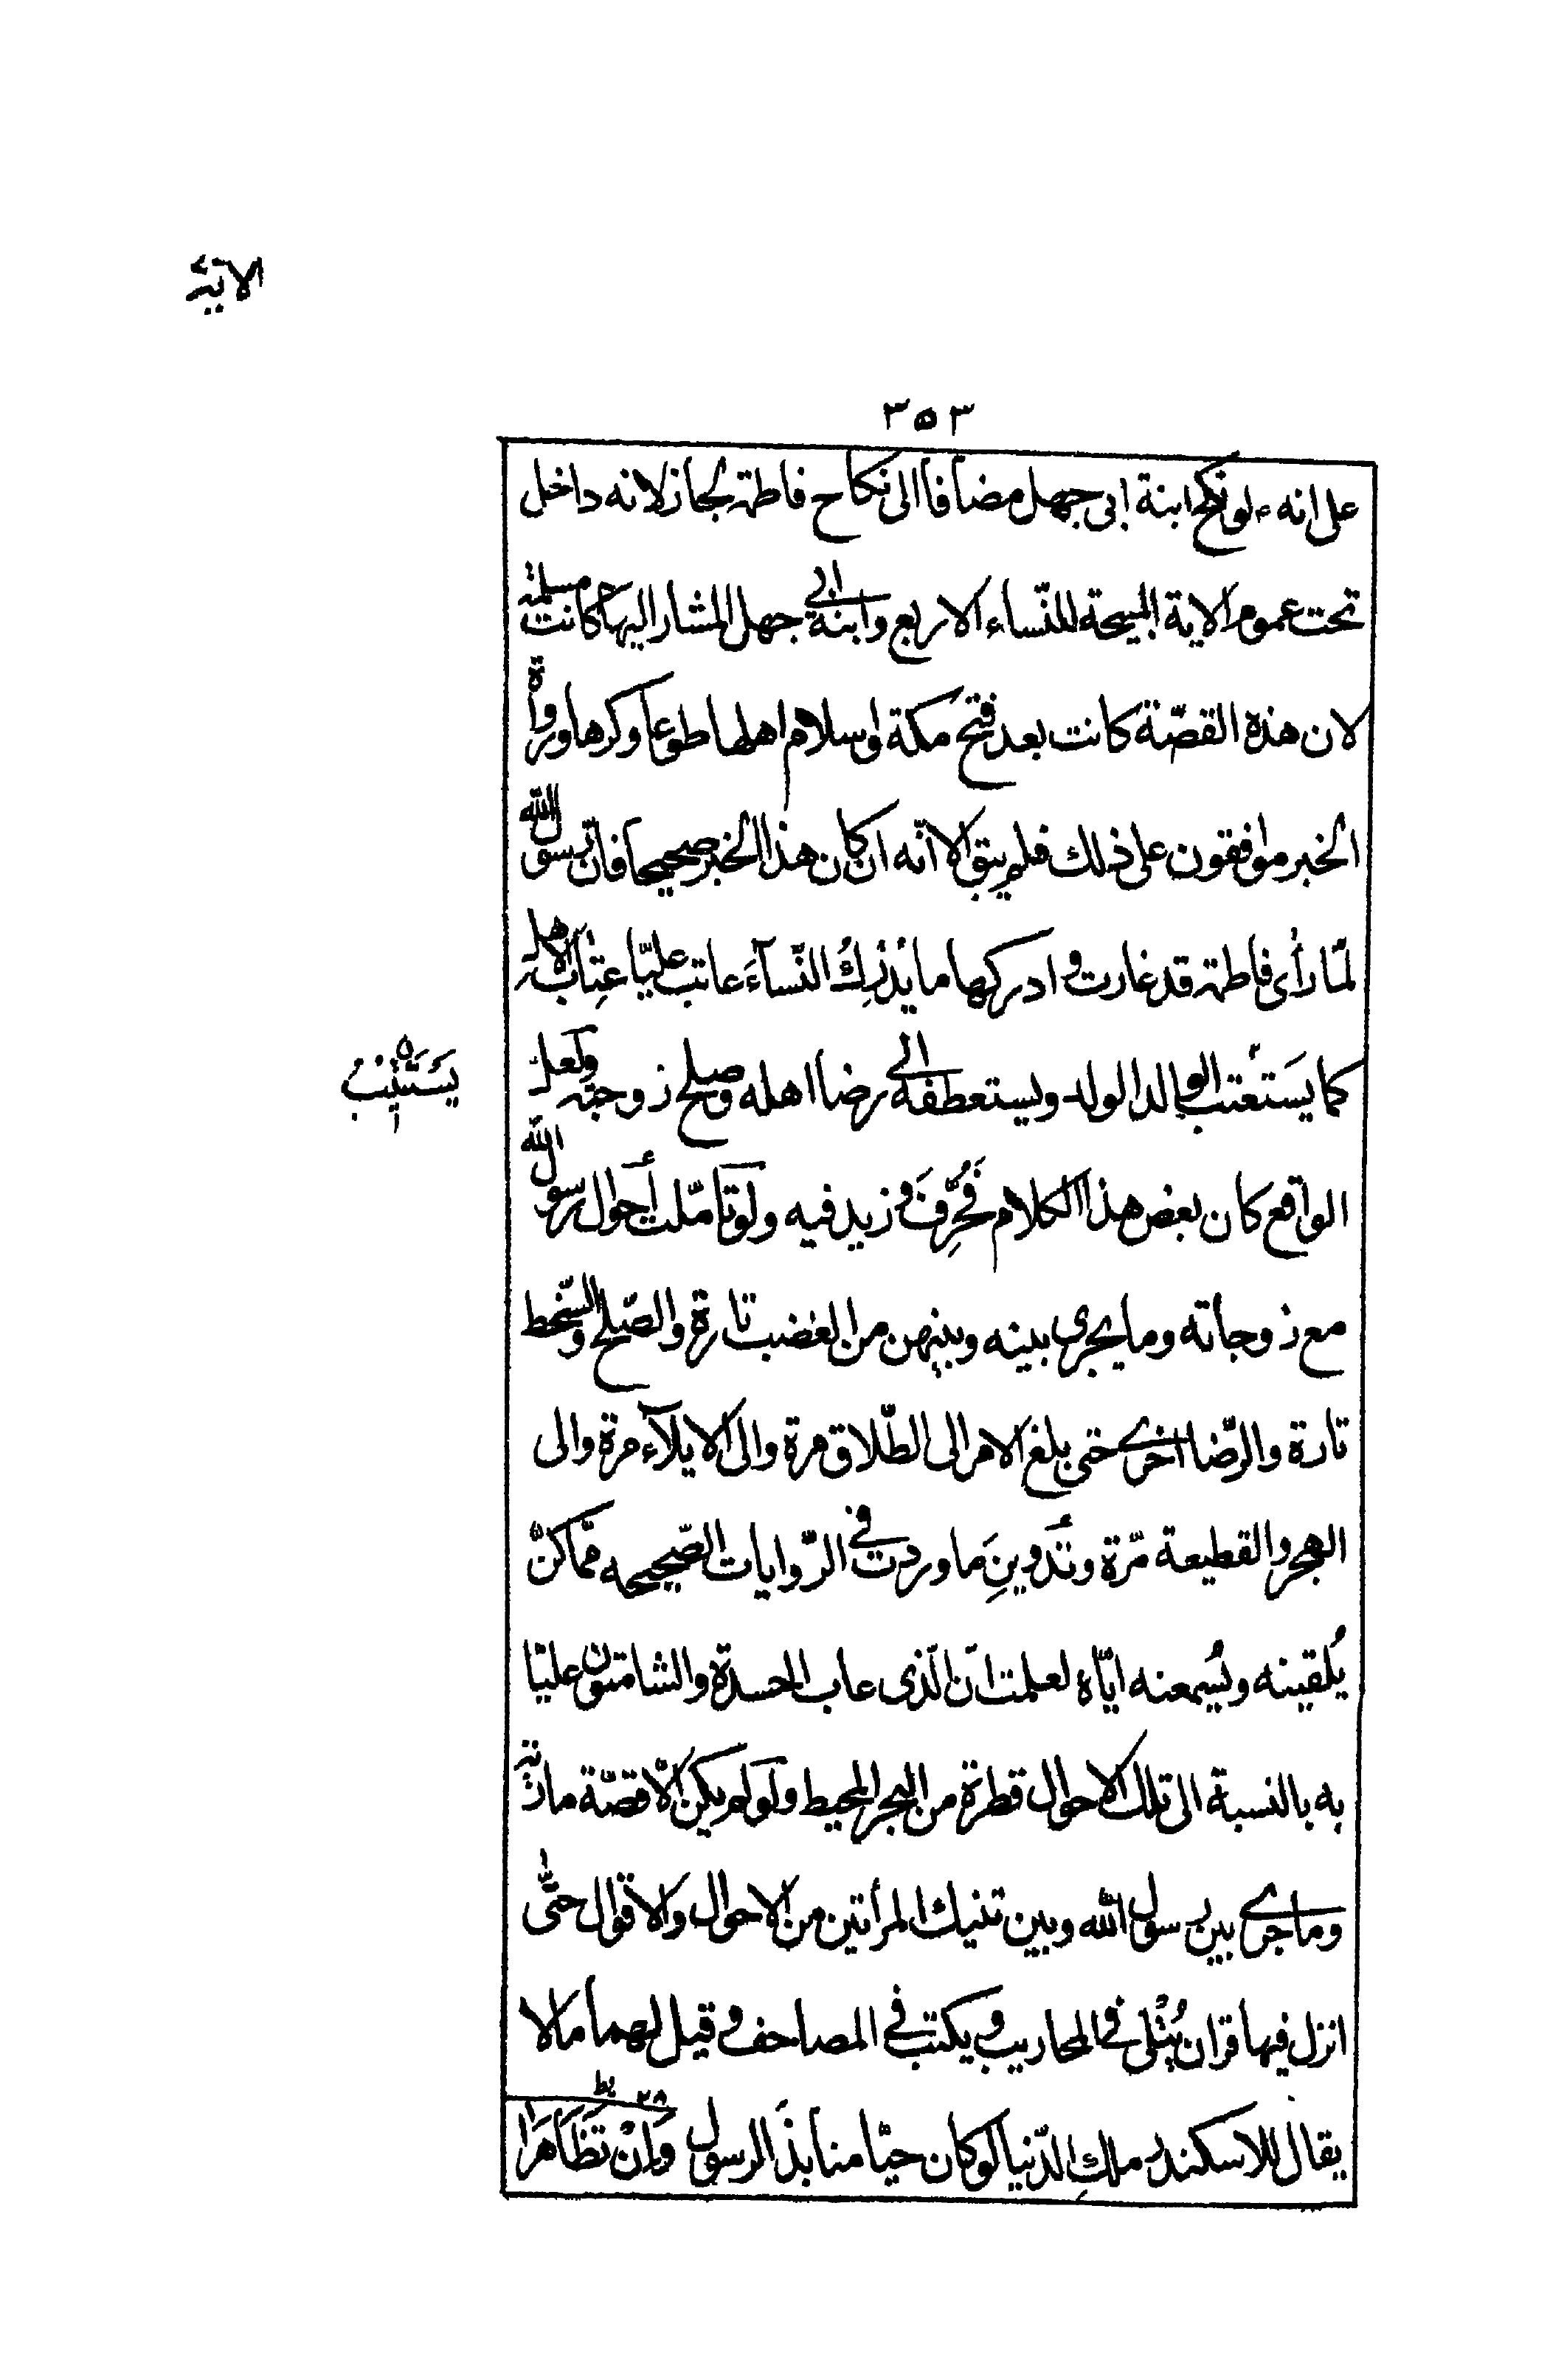 الاية
٣٥٣
على انه ء لو نكح ابنة ابى جهل مضافا الى نكاح فاطمة لجاز لانه داخل
تحت عموم الاية المبيحة للنّساء الاربع وابنة ابى جهل المشار اليها كانت مسلمة
لان هذه القصّة كانت بعد فتح مكة واسلام اهلها طوعا وكرها ورواة
الخبر موافقون على ذلك فلم يبق الا انّه ان كان هذا الخبر صحيحا فانّ رسول الله
لمّا رأى فاطمة قد غارت و ادركها ما يُدْرِكُ النّسآءَ عاتب عليّا عِتابَ الاهل
كما يَستَعْتب الوالد الولد ويستعطفه الى رضا اهله وصلح زوجته ولعلّ
يستثيب
الواقع كان بعض هذا الكلام فَحُرِّفَ و زيد فيه ولو تأمّلت أحوال رسول الله
مع زوجاته وما يجرى بينه وبينهن من الغضب تارة والصّلح والسّخط
تارة والرّضا اخرى حتى بلغ الامر الى الطّلاق مرة والى الايلآء مرة والى
الهجر والقطيعة مرّة وتَدوينِ ما وردت فى الرّوايات الصّحيحه ممّا كنّ
يُلقينه ويُسمعنه ايّاه لعلمت انّ الّذى عاب الحسدة والشامتون عليّا
به بالنسبة الى تلك الاحوال قطرة من البحر المحيط ولو لم يكن الا قصّة مارية
وما جرى بين رسول الله وبين تنيك المرأتين من الاحوال والاقوال حتّى
انزل فيها قران يُتْلى فى المحاريب و يكتب فى المصاحف و قيل لهما ما لا
يقال للاسكندر ملكِ الدّنيا لو كان حيّا منابذا لرسول وَاِنْ تَظَاهَرَا